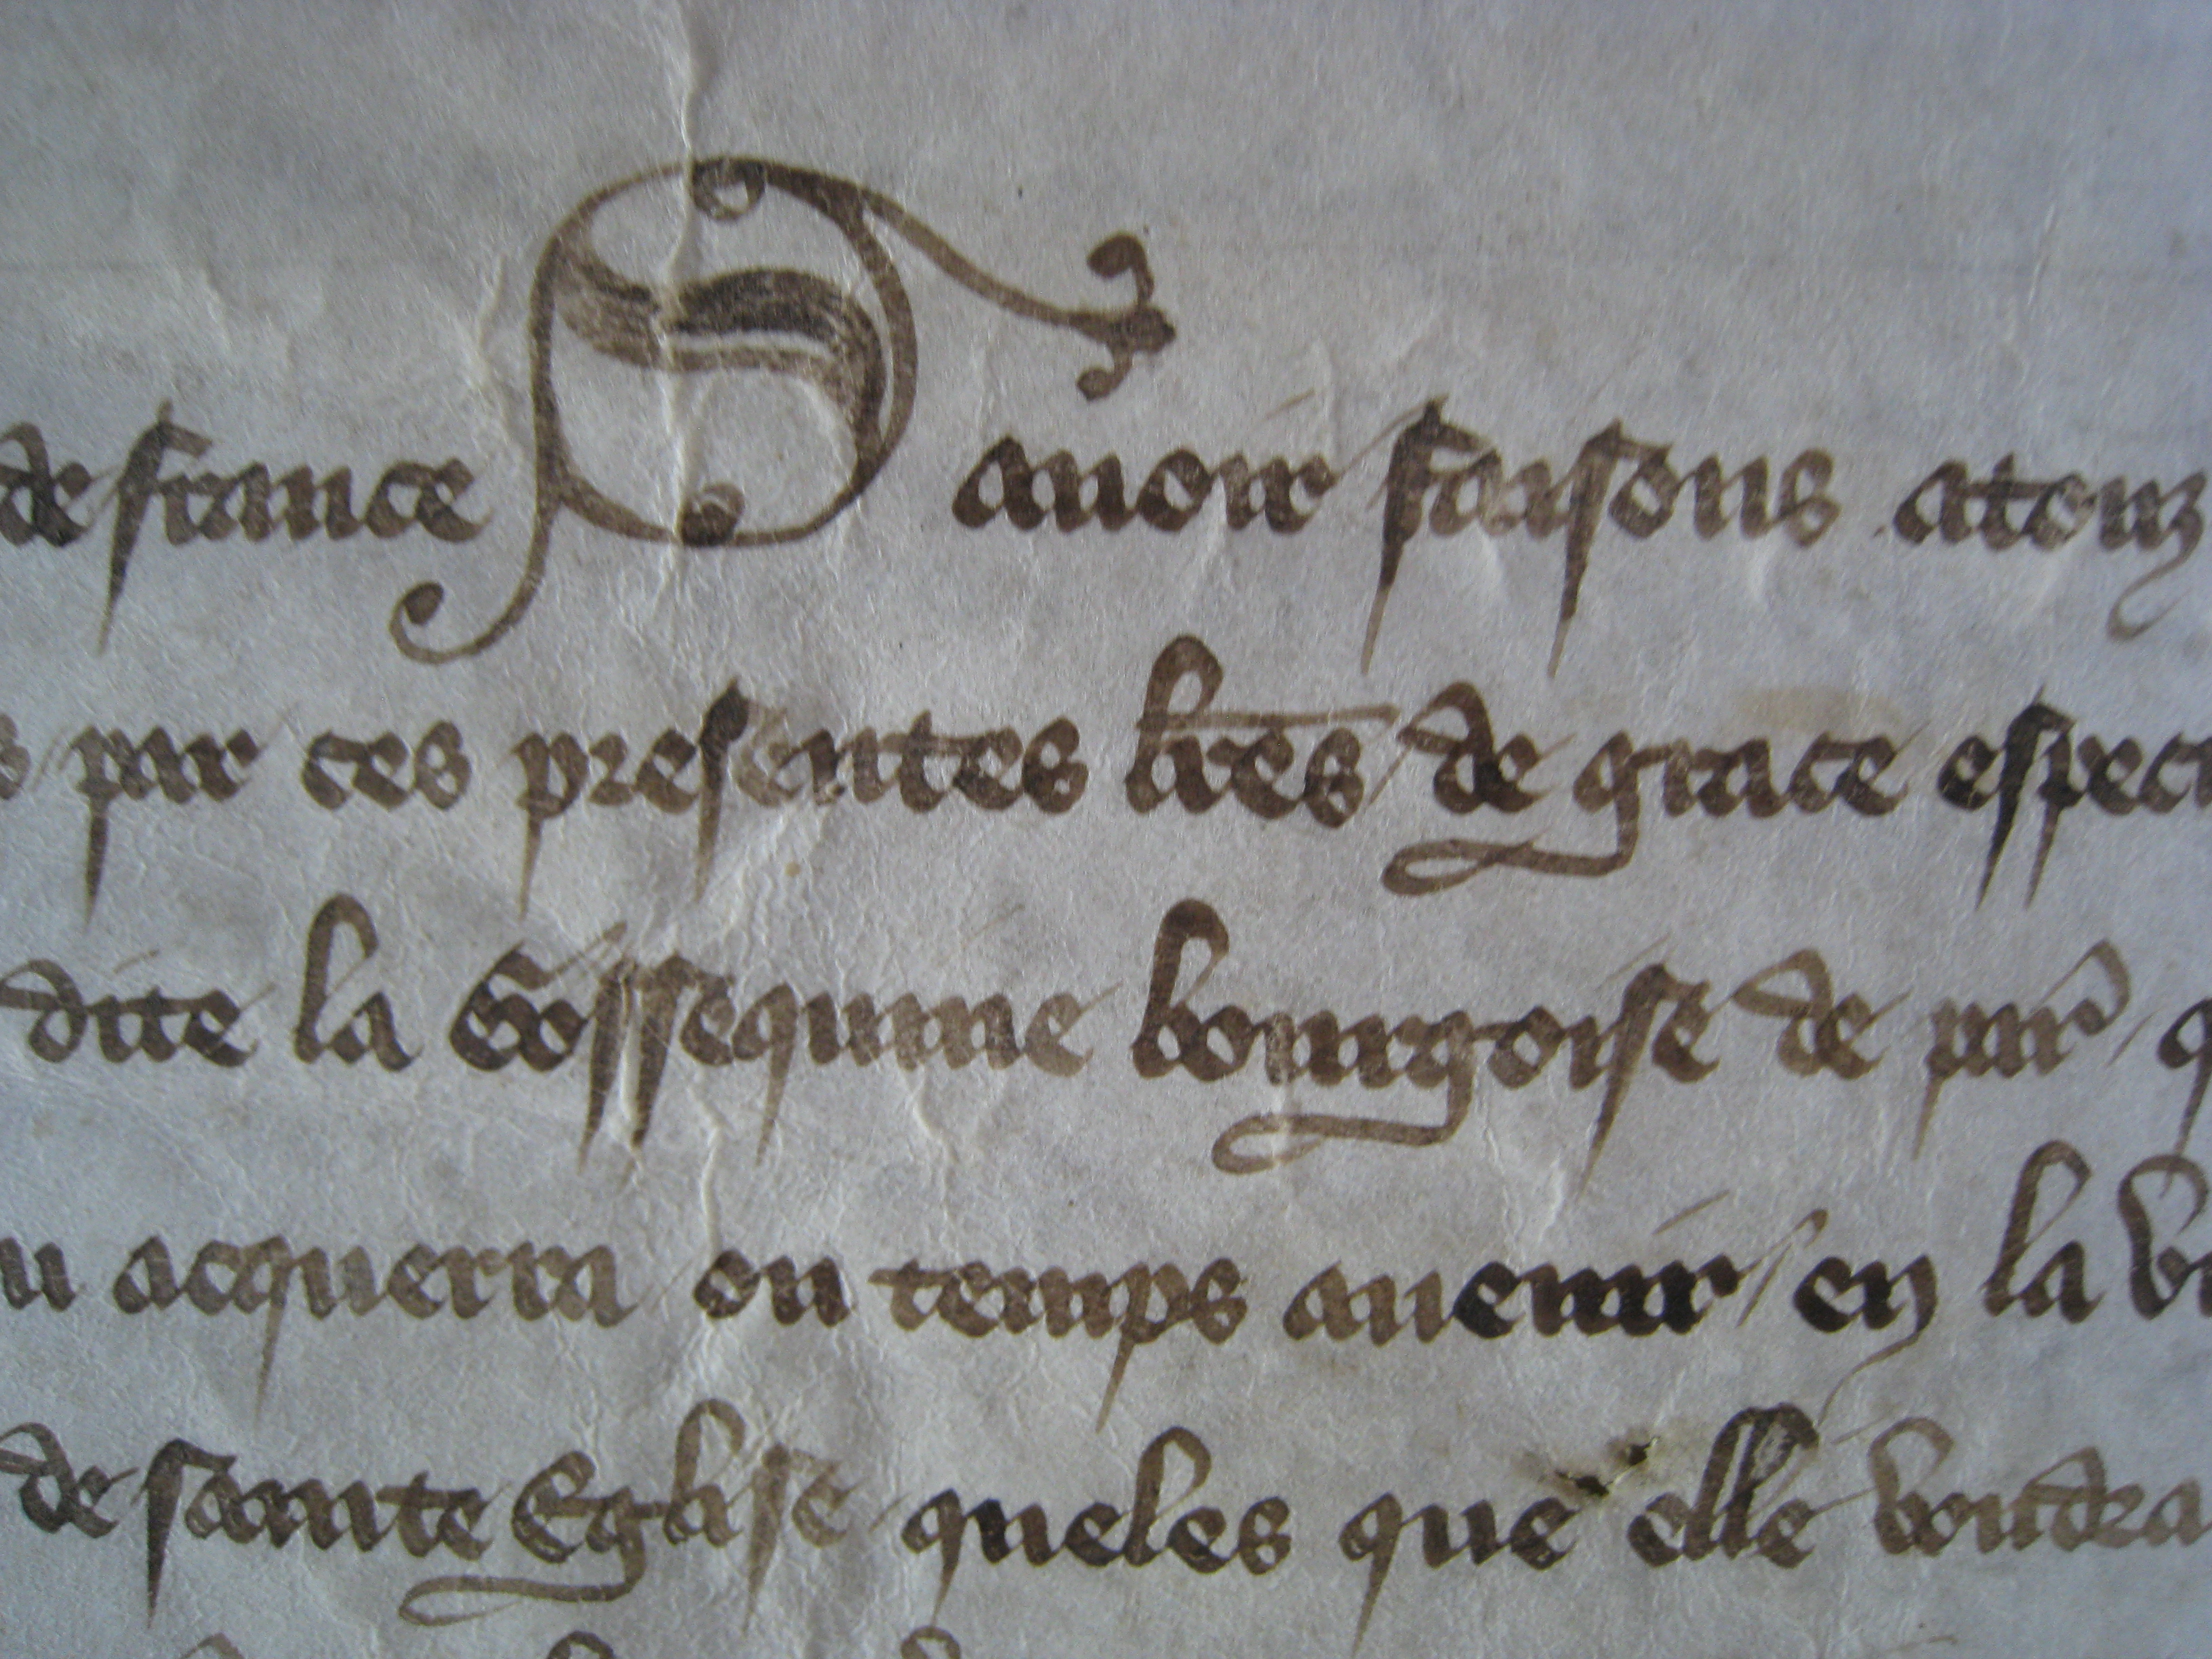 de france Sauoir faisons atouz
s par ces presentes lr̄es de grace especi
dite la Gossequine bourgoise de par̃ q
u acquerra ou temps auenir en la v
de sainte Eglise queles que elle voudra